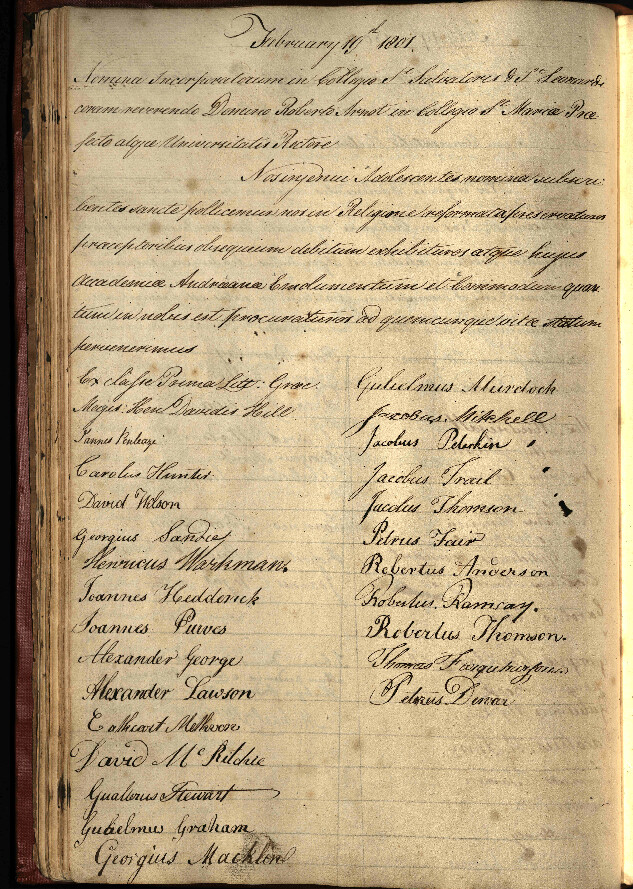 February 19th 1801.
Nomina Incorporatorum in Collegio Sti Salvatoris & Sti Leonardi
coram reverendo Domino Roberto Arnot in Collegio Stæ Mariæ Præ
fato atque Universitatis Rectore
Nos ingenui Adolescentes nomina subscri
bentes sancte pollicemur nos in Religione reformata perseveraturos
præceptoribus obsequium debitum exhibituros atque hujus
Academiæ Andreanæ Emolumentum et Commodum quan
tum in nobis est procuraturos ad quemcunque vitæ statum
pervenerimus
Ex classe Prima Litt: Græc.
Magis: Henr. Davidis Hill
Joannes
Carolus Hunter
David Wilson
Georgius Sandie
Henricus Warkman.
Joannes Hedderick
Joannes Purves
Alexander George
Alexander Lawson
Cathcart Methven
David McRitchie
Gualterus Stewart
Gulielmus Graham
Georgius Macklin
Gulielmus Murdoch
Jacobus Mitchell
Jacobus Peterkin
Jacobus Trail
Jacobus Thomson
Petrus Fair
Robertus Anderson
Robertus Ramsay.
Robertus Thomson.
Thomas Farquharson
Petrus Dewar